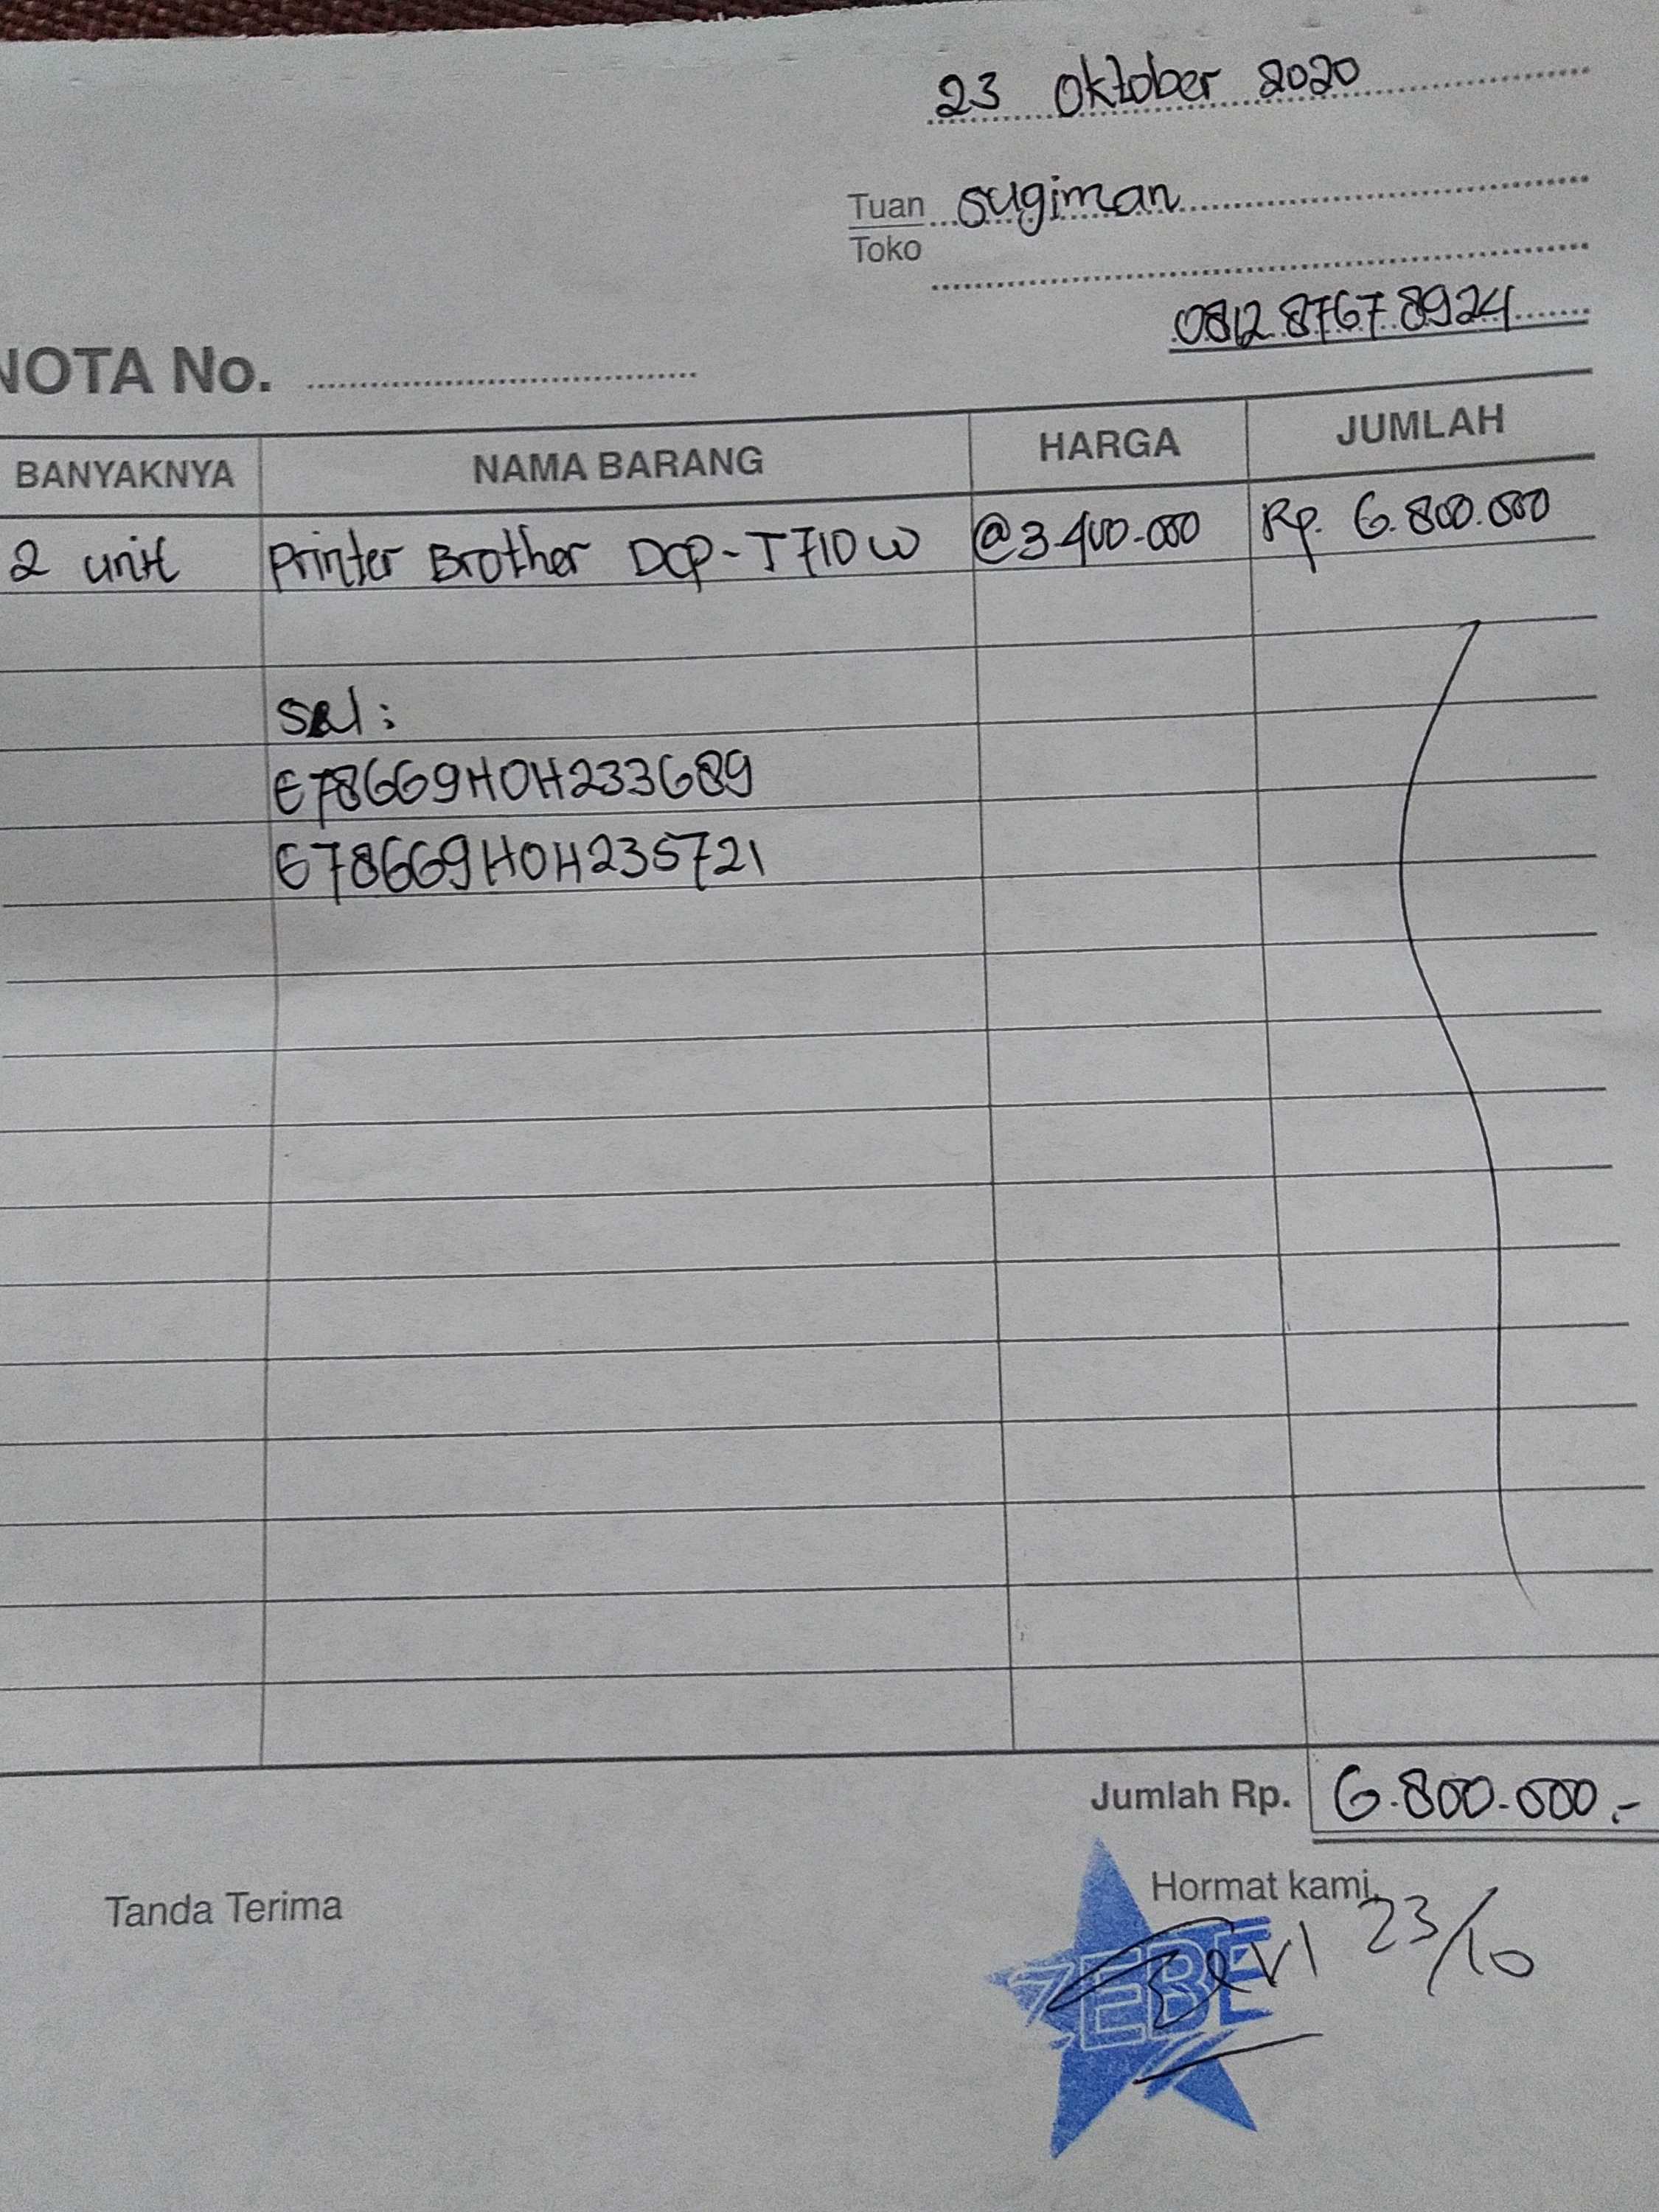 23 Oktober 2020
Tuan Sugiman
Toko
0812 8767 8924
NOTA No.
BANYAKNYA NAMA BARANG HARGA JUMLAH
2 unit Printer Brother DCP-T710W @3.400.000 Rp. 6.800.000
E78669H0H233689
E78669H0H235721
Jumlah Rp. 6.800.000.-
Tanda Terima Hormat kami,
23/10